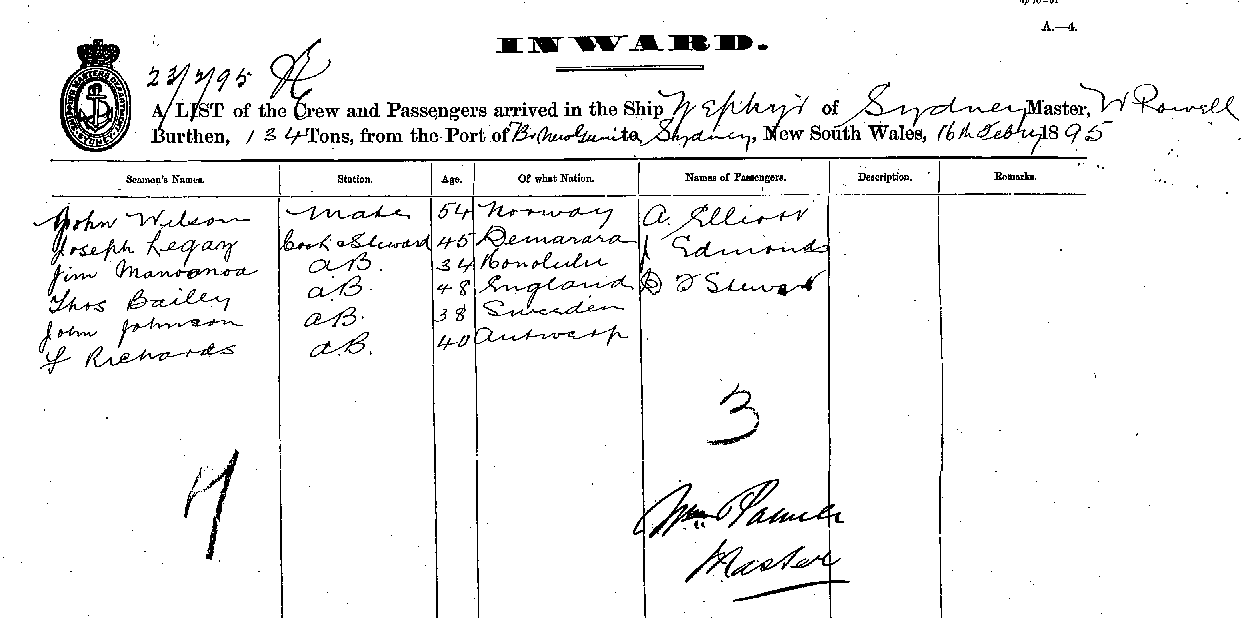 A.—4.
INWARD.
23/2/95
A LIST of the Crew and Passengers arrived in the Ship Zephyr of Sydney, Master, W Rowell
Burthen, 134 Tons, from the Port of Br New Guinea to Sydney, New South Wales, 16th Febry 1895
Seamen's Names. Station. Age. Of what Nation. Names of Passengers. Description. Remarks.
John Wilson Mate 54 Norway A. Elliott
Joseph Legay Cook & Steward 45 Demarara J Edmonds
Jim Manoanoa A.B. 34 Honolulu
Thos Bailey A.B. 48 England D F Stewart
John Johnson A.B. 38 Sweden
L Richards A.B. 40 Antwerp
3
7
Wm
Master